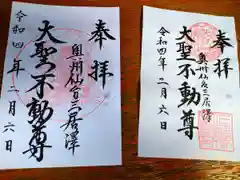 奉拝
奥州仙台三居澤
大聖不動尊
令和四年二月六日
奉拝
奥州仙台三居澤
大聖不動尊
令和四年二月六日